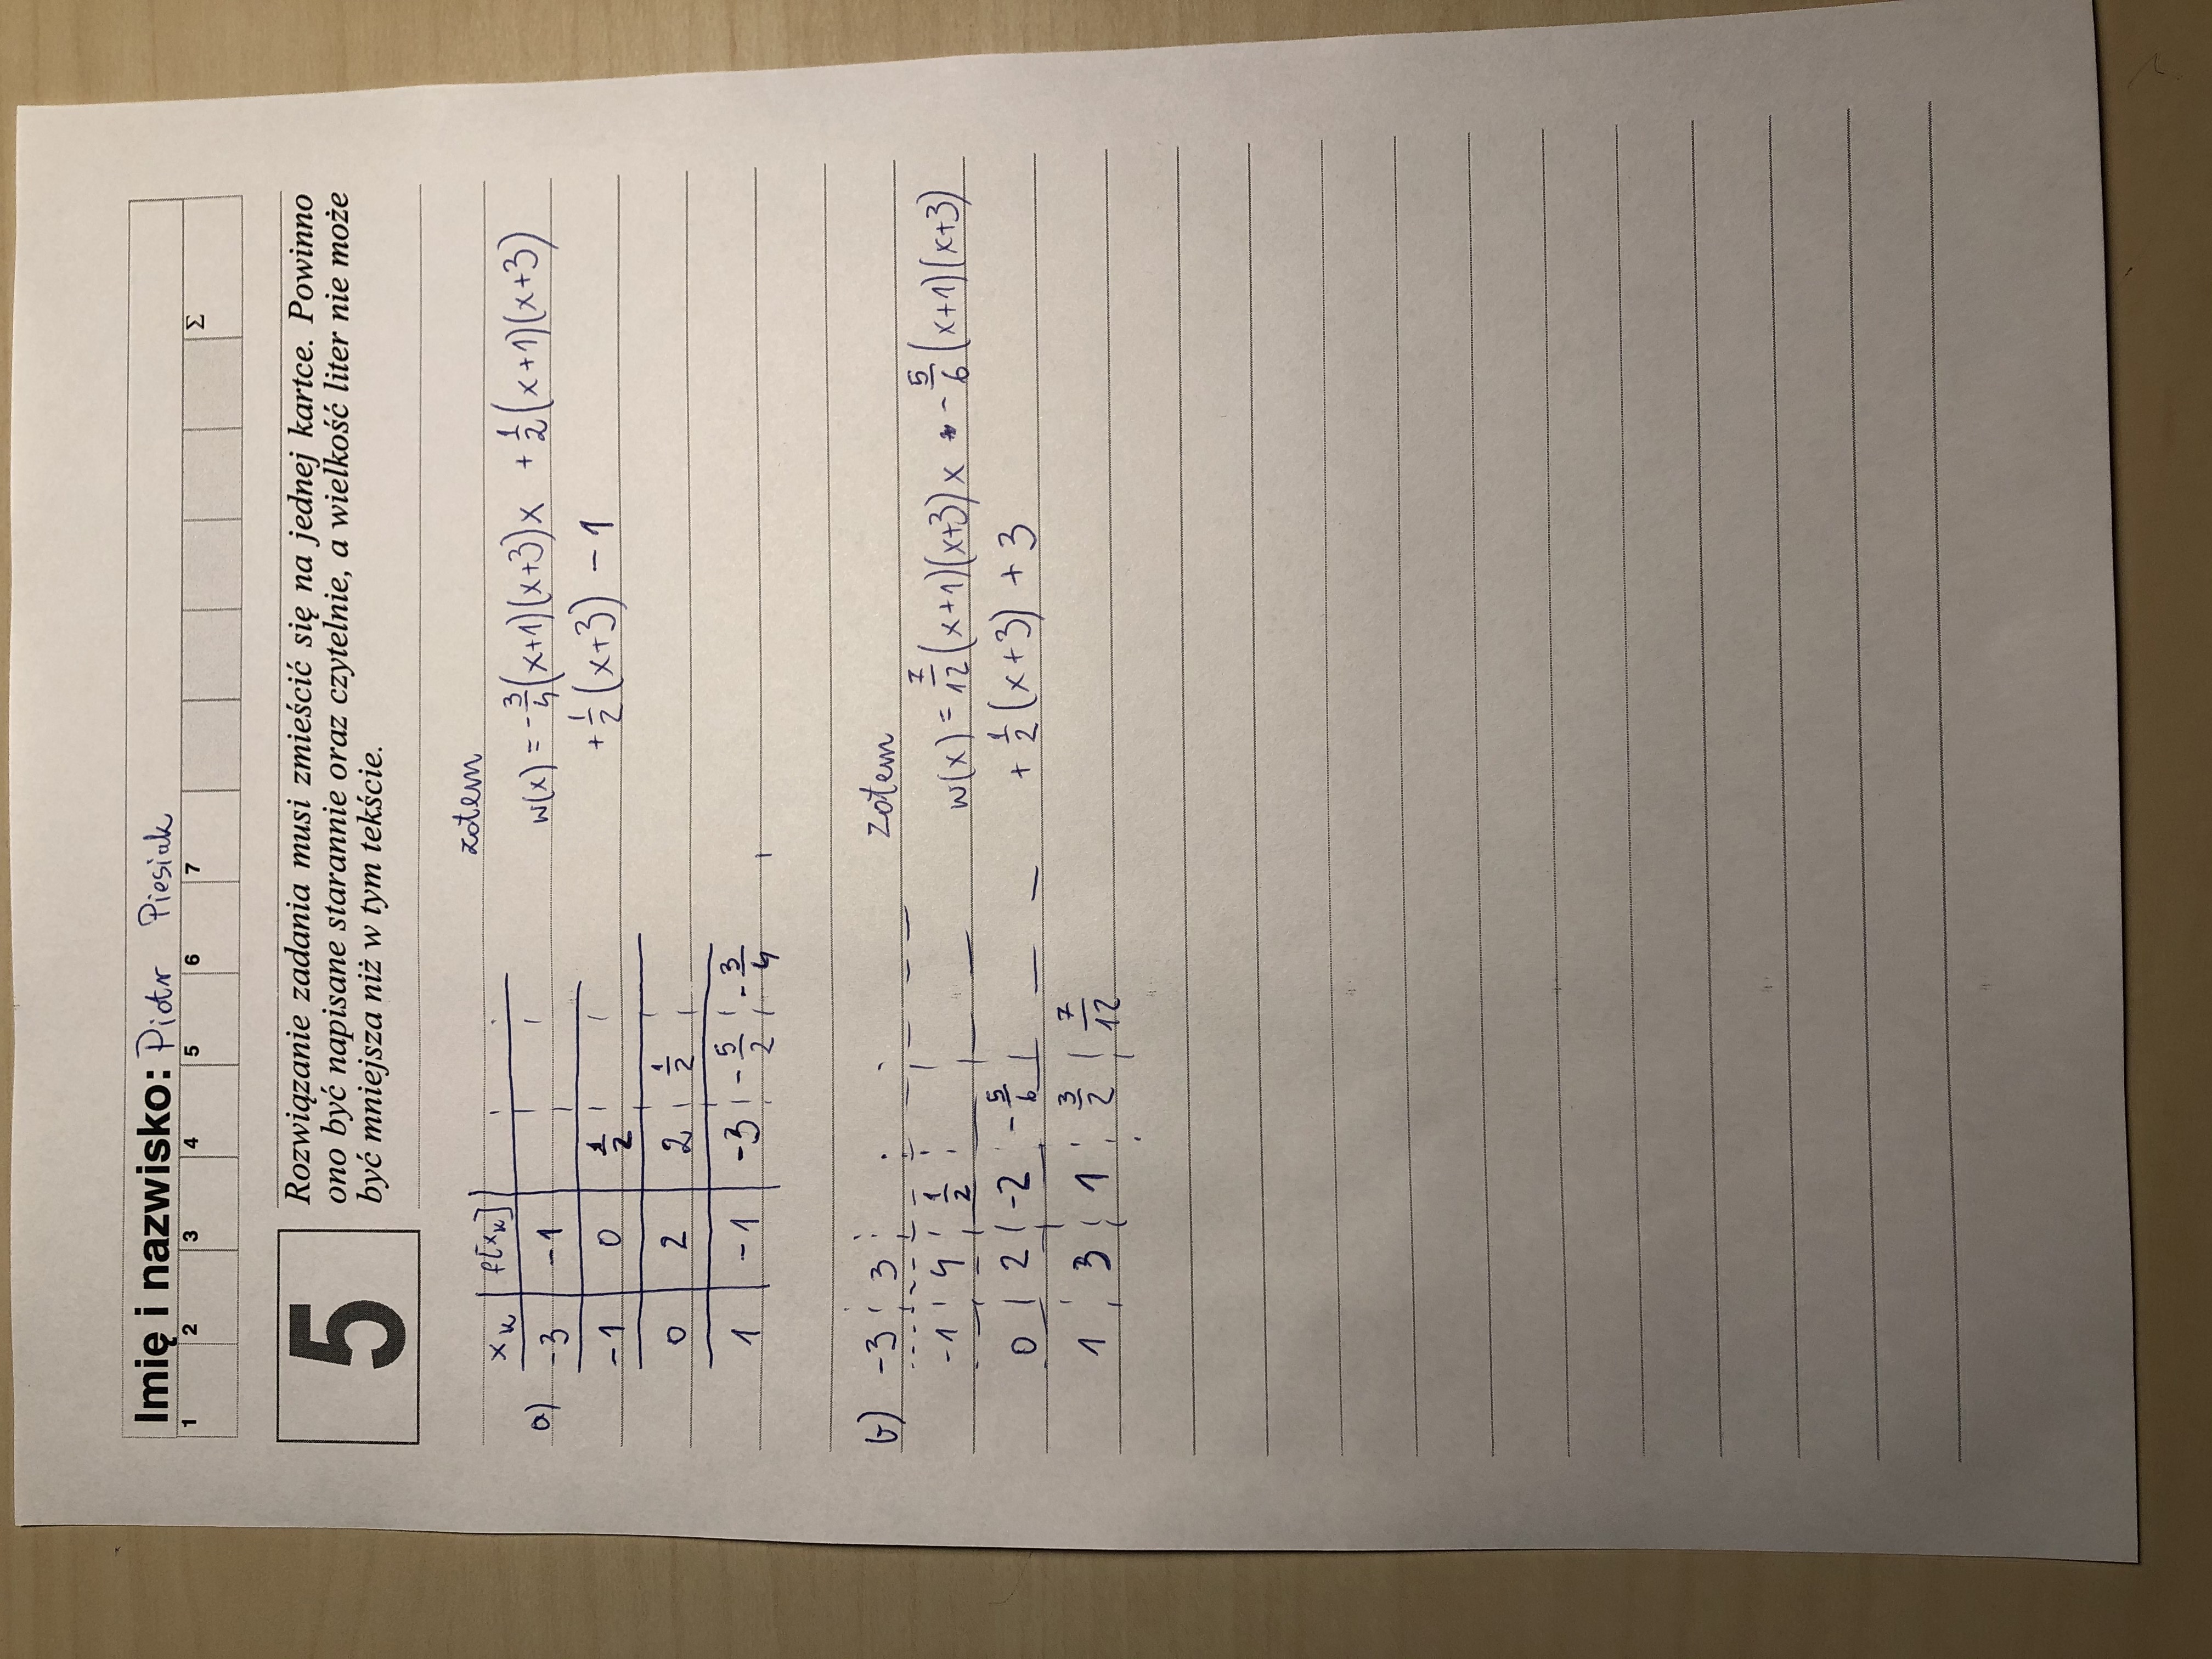 Imię i nazwisko: Piotr Piesiak
1 2 3 4 5 6 7 Σ
5
Rozwiązanie zadania musi zmieścić się na jednej kartce. Powinno
ono być napisane starannie oraz czytelnie, a wielkość liter nie może
być mniejsza niż w tym tekście.
a)
x_k | f[x_k] |
-3 | -1
-1 | 0 | 1/2
0 | 2 | 2 | 1/2
1 | -1 | -3 | -5/2 | -3/4
zatem
w(x) = -3/4(x+1)(x+3)x + 1/2(x+1)(x+3)
+ 1/2(x+3) - 1
b)
-3 | 3
-1 | 4 | 1/2
0 | 2 | -2 | -5/6
1 | 3 | 1 | 3/2 | 7/12
zatem
w(x) = 7/12(x+1)(x+3)x - 5/6(x+1)(x+3)
+ 1/2(x+3) + 3